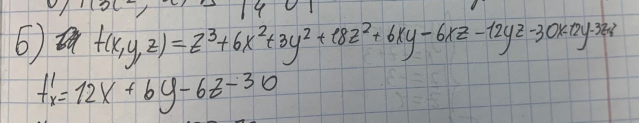 б) f(x,y,z)=z³+6x²+3y²+18z²+6xy-6xz-12yz-30x-12y-
f'x=12x+6y-6z-30